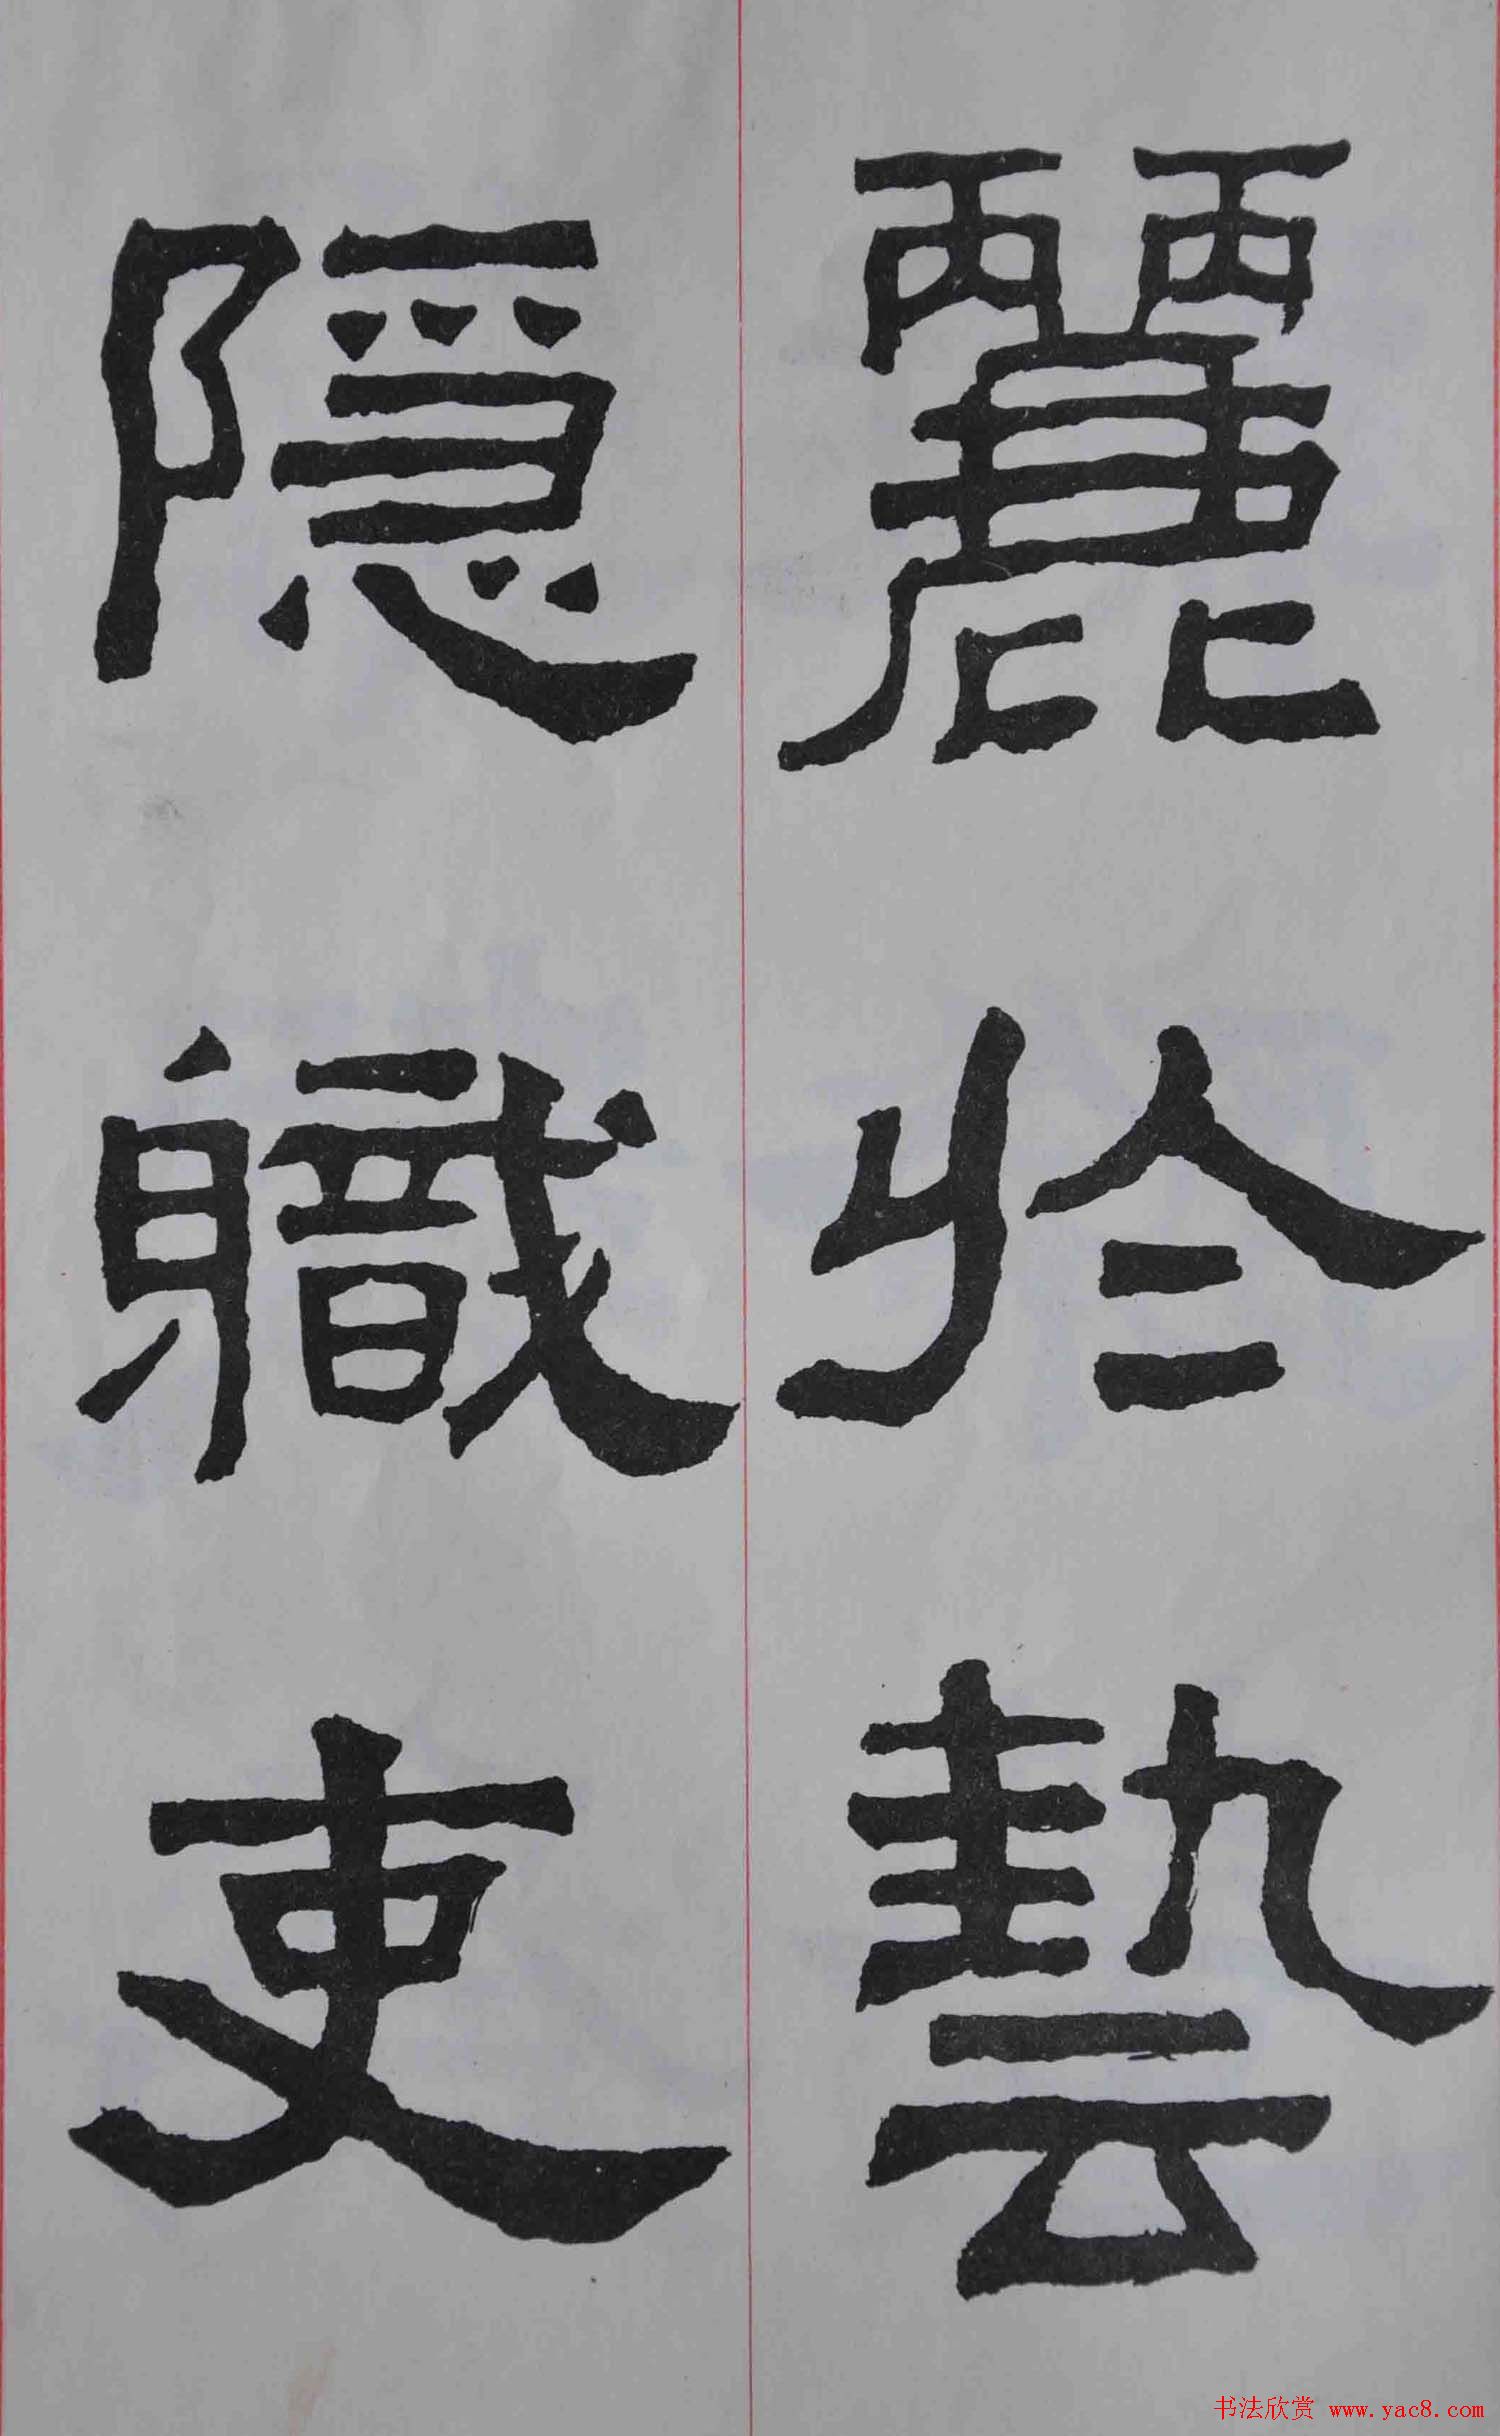 麗於藝
隱軄吏
书法欣赏 www.yac8.com